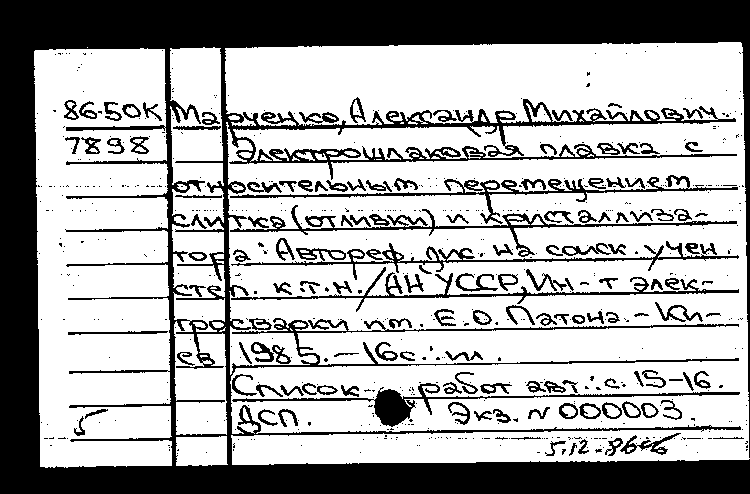 86-50К Марченко, Александр Михайлович.
7898 Электрошлаковая плавка с
относительным перемещением
слитка (отливки) и кристаллиза-
тора: Автореф. дис. на соиск. учен.
степ. к.т.н. / АН УССР, Ин-т элек-
тросварки им. Е.О. Патона. - Ки-
ев, 1985. - 16с.: ил.
Список работ авт.: с. 15-16.
5 ДСП. Экз. N 000003.
5.12.-86